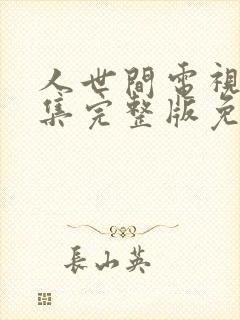 人世間電視
集完整版免
長山英